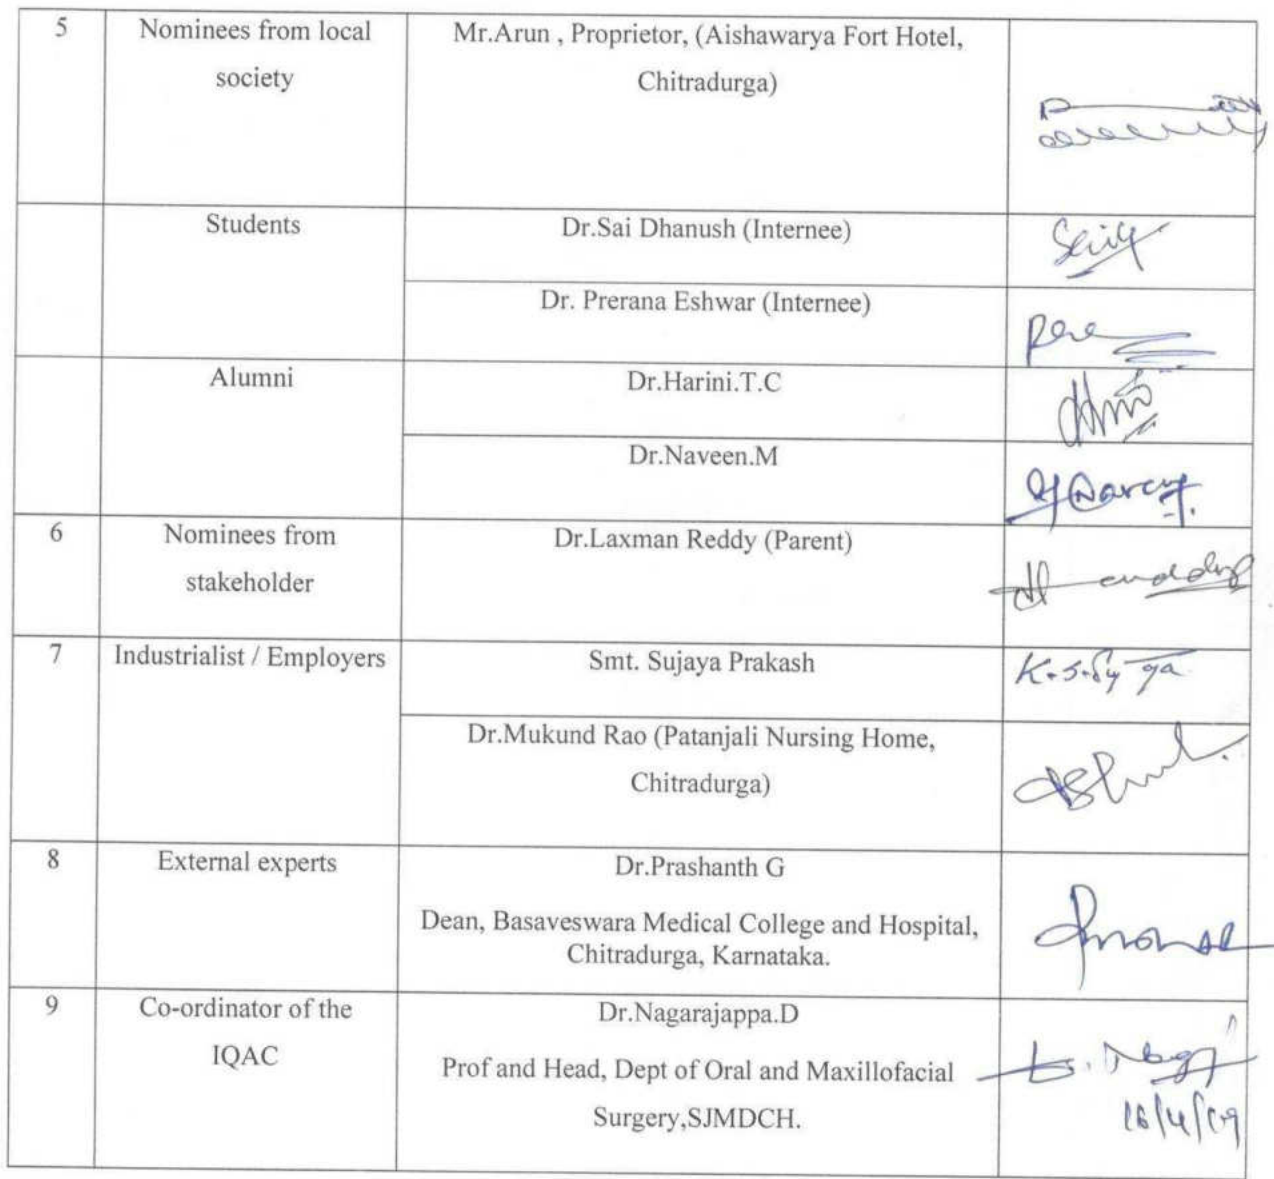 5 Nominees from local Mr.Arun , Proprietor, (Aishawarya Fort Hotel,
society Chitradurga)
Students Dr.Sai Dhanush (Internee)
Dr. Prerana Eshwar (Internee)
Alumni Dr.Harini.T.C
Dr.Naveen.M
6 Nominees from Dr.Laxman Reddy (Parent)
stakeholder
7 Industrialist / Employers Smt. Sujaya Prakash
Dr.Mukund Rao (Patanjali Nursing Home,
Chitradurga)
8 External experts Dr.Prashanth G
Dean, Basaveswara Medical College and Hospital,
Chitradurga, Karnataka.
9 Co-ordinator of the Dr.Nagarajappa.D
IQAC Prof and Head, Dept of Oral and Maxillofacial
Surgery,SJMDCH.